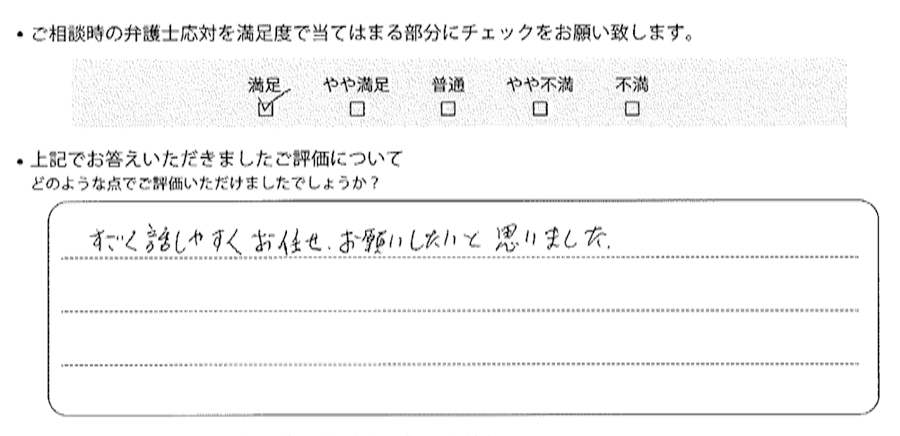 ・ご相談時の弁護士応対を満足度で当てはまる部分にチェックをお願い致します。
満足 やや満足 普通 やや不満 不満
☑ □ □ □ □
・上記でお答えいただきましたご評価について
どのような点でご評価いただけましたでしょうか？
すごく話しやすくお任せ、お願いしたいと思いました。